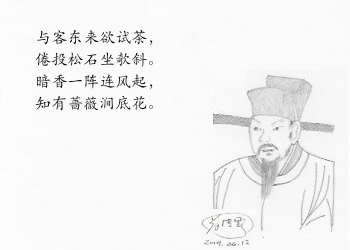 与客东来欲试茶，
倦投松石坐欹斜。
暗香一阵连风起，
知有蔷薇涧底花。
2019.06.12